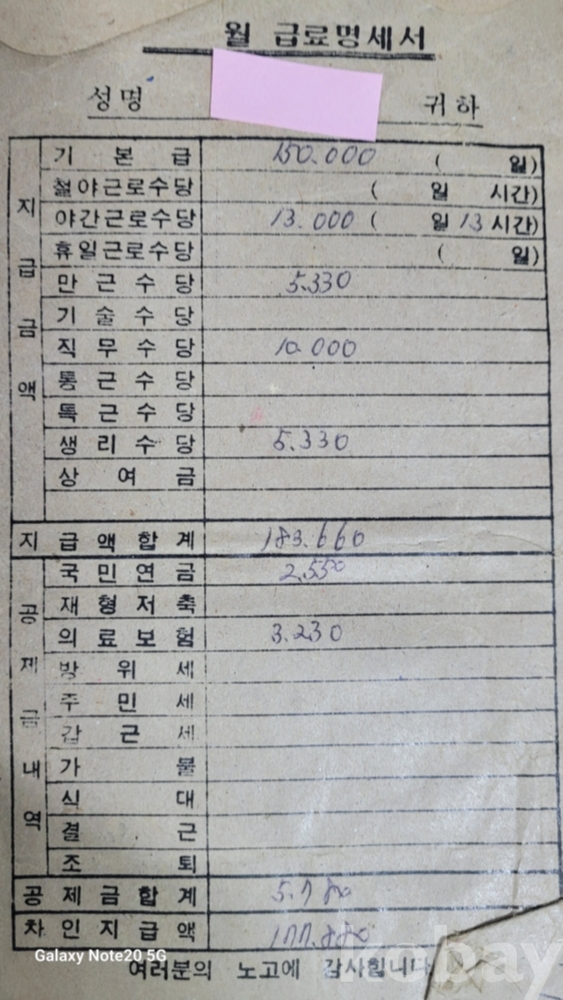 월 급료명세서
성명 귀하
지급금액
기본급 150.000 ( 일)
철야근로수당 ( 일 시간)
야간근로수당 13.000 ( 일 13 시간)
휴일근로수당 ( 일)
만근수당 5.330
기술수당
직무수당 10.000
통근수당
특근수당
생리수당 5.330
상여금
지급액합계 183.660
공제금내역
국민연금 2.550
재형저축
의료보험 3.230
방위세
주민세
갑근세
가불
식대
결근
조퇴
공제금합계 5.780
차인지급액 177.880
여러분의 노고에 감사합니다
Galaxy Note20 5G
kobay